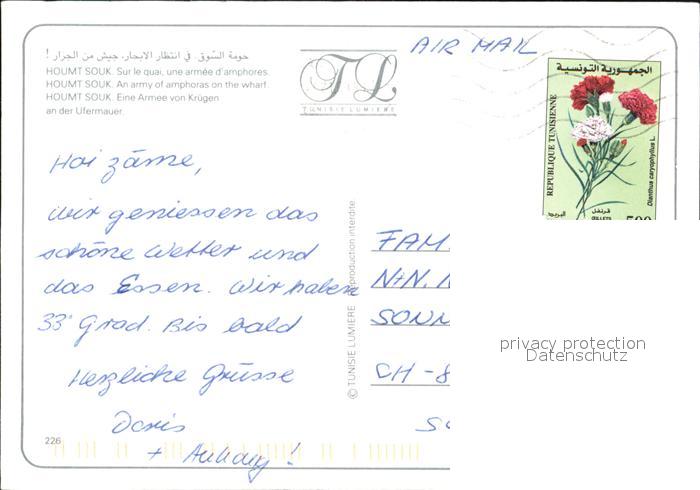 حومة السّوق. في انتظار الابحار، جيش من الجرار !
HOUMT SOUK. Sur le quai, une armée d'amphores.
HOUMT SOUK. An army of amphoras on the wharf.
HOUMT SOUK. Eine Armee von Krügen
an der Ufermauer.
TL
TUNISIE LUMIERE
AIR MAIL
الجمهورية التونسية
REPUBLIQUE TUNISIENNE
Dianthus caryophyllus L.
قرنفل
البريد
500
Hoi zäme,
wir geniessen das
schöne Wetter und
das Essen. Wir haben
33° Grad. Bis bald
Herzliche Grüsse
Doris
+
226
© TUNISIE LUMIERE Reproduction interdite
FAM.
N+N.
SONN
CH-8
privacy protection
Datenschutz